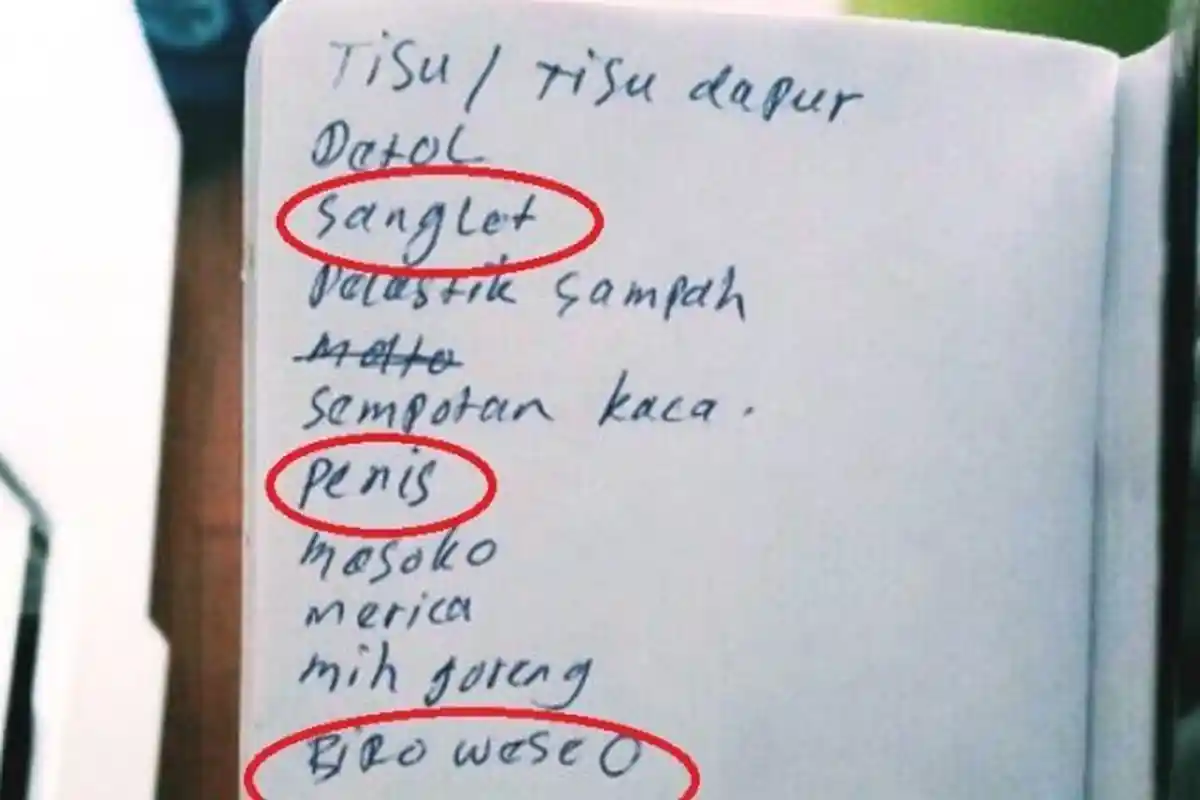 Tisu / Tisu dapur
Datol
sanglet
Pelastik sampah
Molto
sempotan kaca.
penis
masoko
merica
mih goreng
BiRo weseO